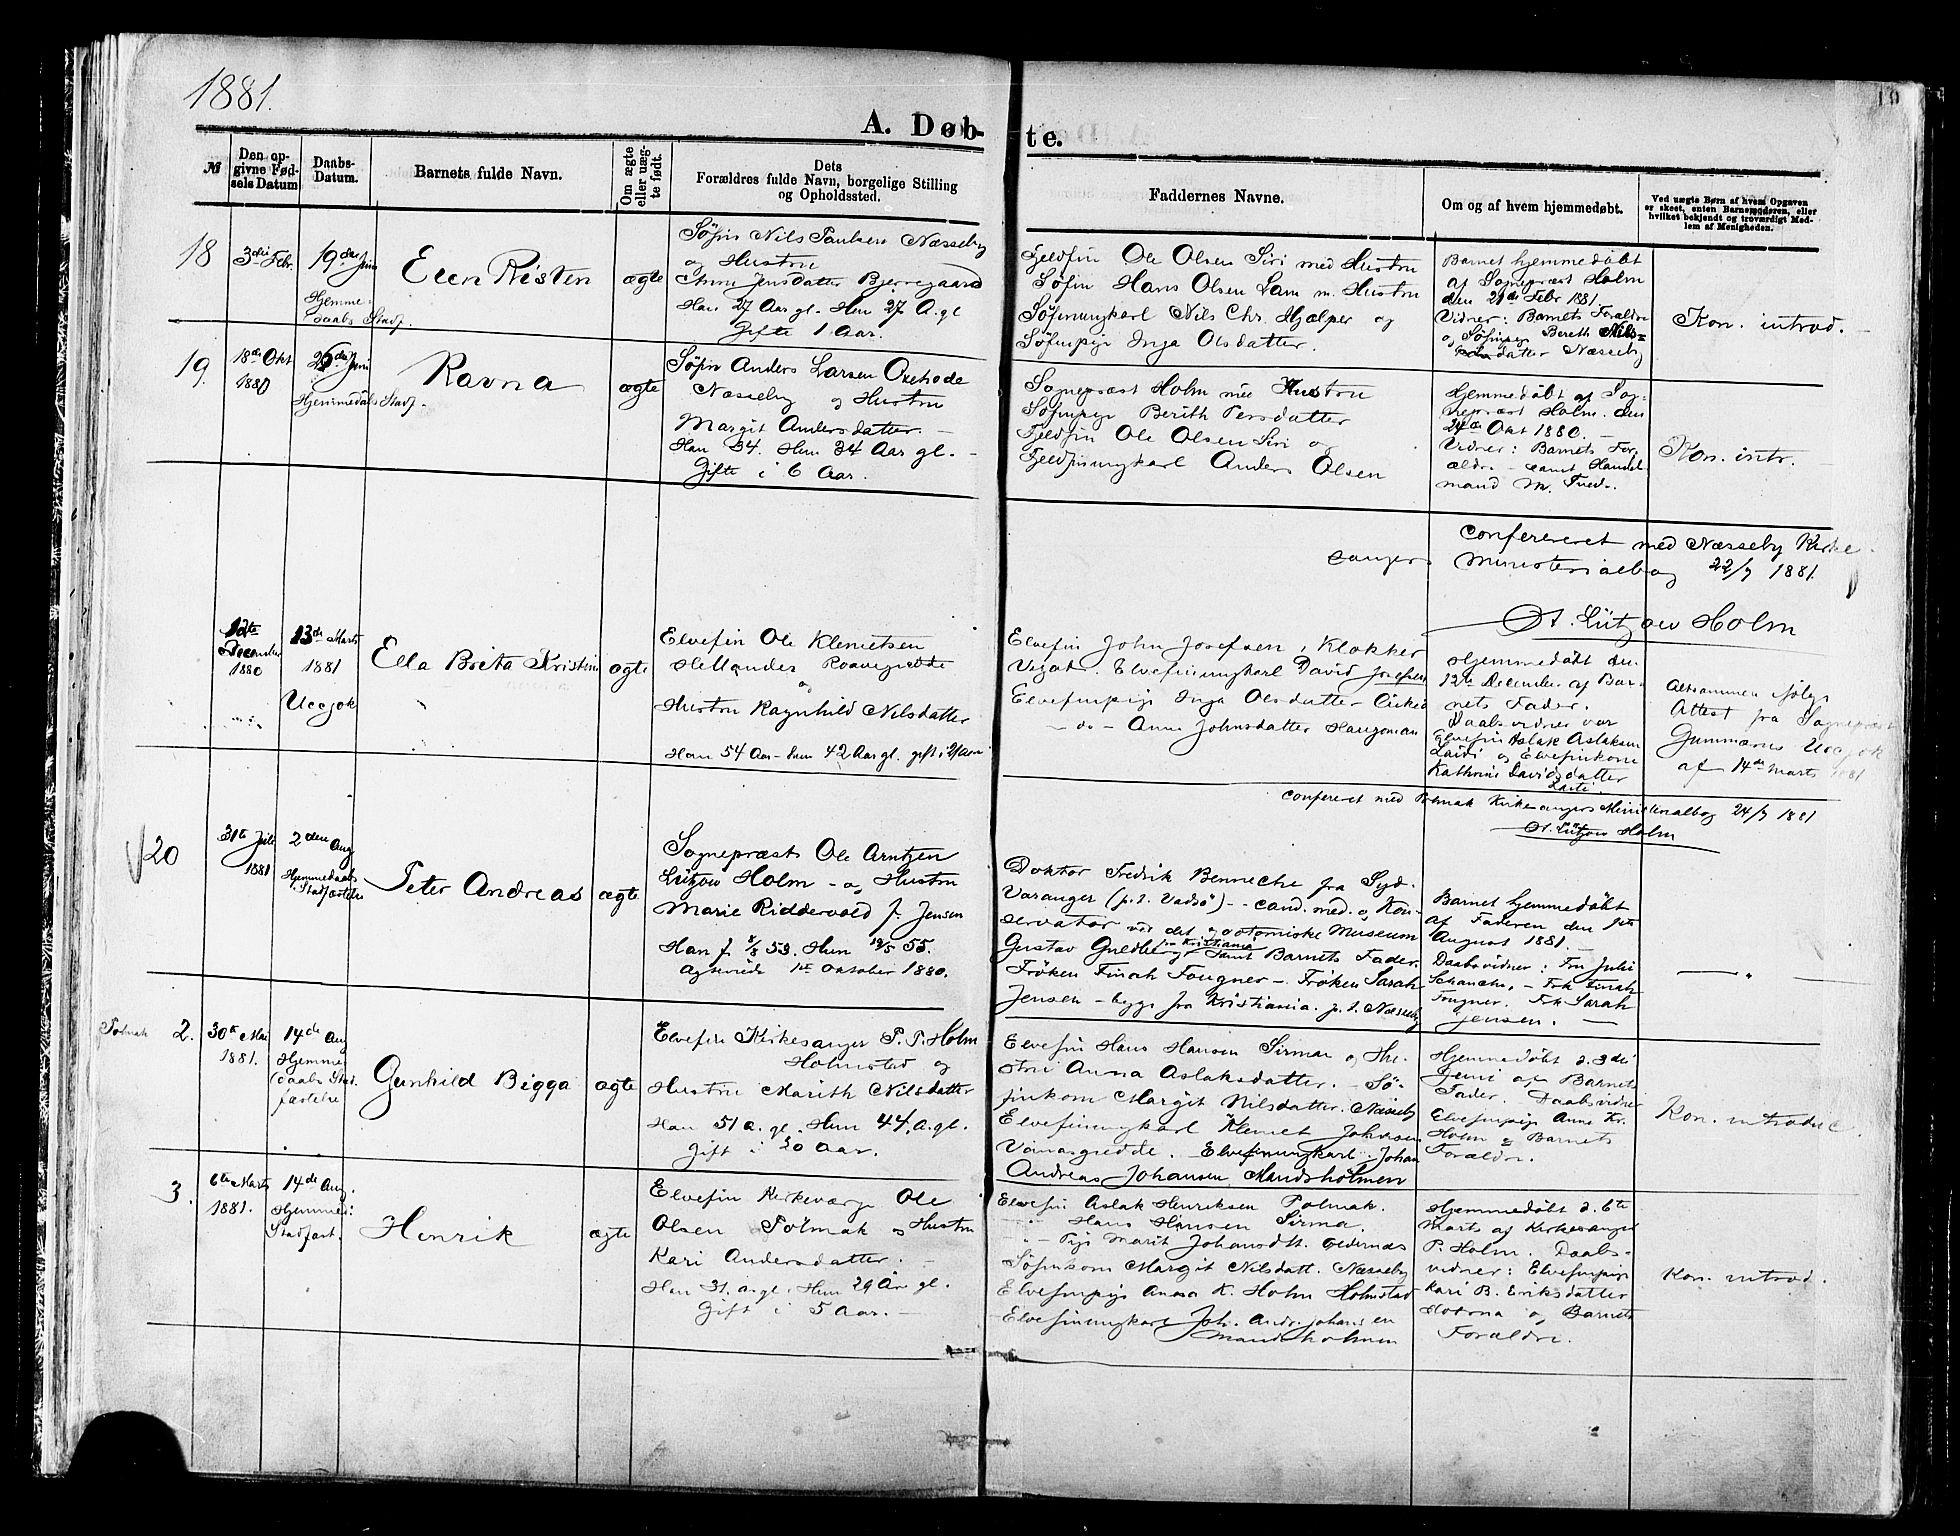 1881.
19
A. Døb-
te.
№
Den op-
givne Fød-
sels Datum
Daabs-
Datum.
Barnets fulde Navn.
Om ægte
eller uæg-
te født.
Dets
Forældres fulde Navn, borgelige Stilling
og Opholdssted.
Faddernes Navne.
Om og af hvem hjemmedøbt.
Ved uægte Børn af hvem Opgaven
er skeet, enten Barnemoderen, eller
hvilket bekjendt og troværdigt Med-
lem af Menigheden.
18
3die Febr.
19de Juni
Hjemme-
daabs Stadf.
Elen Risten
ægte
Søfin Nils Paulsen Næsseby
og Hustru
Anne Jensdatter Bjerregaard
Han 27 Aar gl. Hun 27 A. gl
Gifte 1 Aar.
Fjeldfin Ole Olsen Siri med Hustru
Søfin Hans Olsen Lam m. Hustru
Søfinungkarl Nils Chr. Hjælper og
Søfinpige Inga Olsdatter.
Barnet hjemmedøbt
af Sognepræst Holm
den 21de Febr 1881.
Vidner: Barnets Forældre
og Søfinpige Bereth Nils-
datter Næsseby
Kon. introd.
19.
18de Okt
1880
26de Juni
Hjemmedåbs Stadf.
Ravna
ægte
Søfin Anders Larsen Oxehode
Næsseby og Hustru
Margit Andersdatter. –
Han 34. Hun 34 Aar gl. –
Gifte i 6 Aar.
Sognepræst Holm med Hustru
Søfinpige Berith Persdatter
Fjeldfin Ole Olsen Siri og
Fjeldfinungkarl Anders Olsen
Hjemmedøbt af Sog-
nepræst Holm. den
24de Okt 1880. –
Vidner: Barnets For-
ældre – samt Handel
mand M. Fued.
Kon. intr.
confereret med Næsseby Kirke
sangers Ministerialbog 22/7 1881.
O. A. Lützow Holm
12te
December
1880
13de Marts
1881
Utsjok
Ella Brita Kristine
ægte
Elvefin Ole Klemetsen
Hellander Roavvegiedde
og
Hustru Ragnhild Nilsdatter
Han 54 Aar – hun 42 Aar gl. gift i 21 Aar
Elvefin John Josefsen, Klokker
Elvefinungkarl David Josefsen
Elvefinpige Inga Olsdatter
– do – Anne Johnsdatter
Hjemmedøbt den
12te December af Bar-
nets Fader.
Daabsvidner var
Elvefin Aslak Aslaksen
Laiti og Elvefinkone
Kathrine Davidsdatter
Laiti.
Altsammen ifølge
Attest fra Sognepræst
Utsjok
af 14de Marts 1881
Conferet med Polmak Kirkesangers Ministerialbog 24/7 1881
O. A. Lützow Holm
20
31te Juli
1881
2den Aug
Hjemmedaabs
Stadfæstelse
Peter Andreas
ægte
Sognepræst Ole Arntzen
Lützow Holm – og Hustru
Marie Riddervold f. Jensen
Han f 8/8 53. Hun 19/5 55.
Ægteviede 1ste Oktober 1880.
Doktor Fredrik Benneche fra Syd.
Varanger (p. t. Vadsø) – cand. med. og Kon-
servator ved det zootomiske Museum
i Kristiania
Gustav Guldberg – samt Barnets Fader.
Frøken Finah Fougner – Frøken Sarah
Jensen – begge fra Kristiania. p. t. Næsseby
Barnet hjemmedøbt
af Faderen den 1ste
August 1881. –
Daabsvidner: Fru Juli
Schanche, – Frk Finah
Fougner. Frk Sarah
Jensen. –
– " –
Polmak
2.
30te Mai
1881.
14de Aug
Hjemme
daabs Stad.
fæstelse
Gunhild Bigga
ægte
Elvefin Kirkesanger P. P. Holm
Holmestad og
Hustru Marith Nilsdatter
Han 51 a. gl. Hun 44, a. gl.
Gift i 20 Aar.
Elvefin Hans Hansen Sirma og Hu-
stru Anna Aslaksdatter. – Sø-
finkone Margit Nilsdatter. Næsseby
Elvefinungkarl Klemet Johnsen
Elvefinungkarl Johan
Andreas Johansen Mandsholmen
Hjemmedøbt d. 3die
Juni af Barnets
Fader. Daabsvidner
Elvefinpige Anne Kr.
Holm & Barnets
Forældre.
Kon. introduc.
3.
6te Marts
1881.
14de Aug.
Hjemmed:
Stadfæst.
Henrik
ægte
Elvefin Kirkeværge Ole
Olsen Polmak og Hustru
Kari Andersdatter. –
Han 31. a. gl. Hun 29 År gl.
Gift i 5 Aar. –
Elvefin Aslak Henriksen Polmak.
" Hans Hansen Sirma.
" – Pige Marit Johansdtt.
Søfinkone Margit Nilsdatt. Næsseby
Elvefinpige Anna K. Holm Holmestad
Elvefinungkarl Joh. Andr. Johansen
Mandsholmen
Hjemmedøbt d. 6te
Marts af Kirkesanger
P. Holm. Daabs-
vidner: Elvefinpige
Kari B. Eriksdatter
og Barnets
Forældre.
Kon. introd.